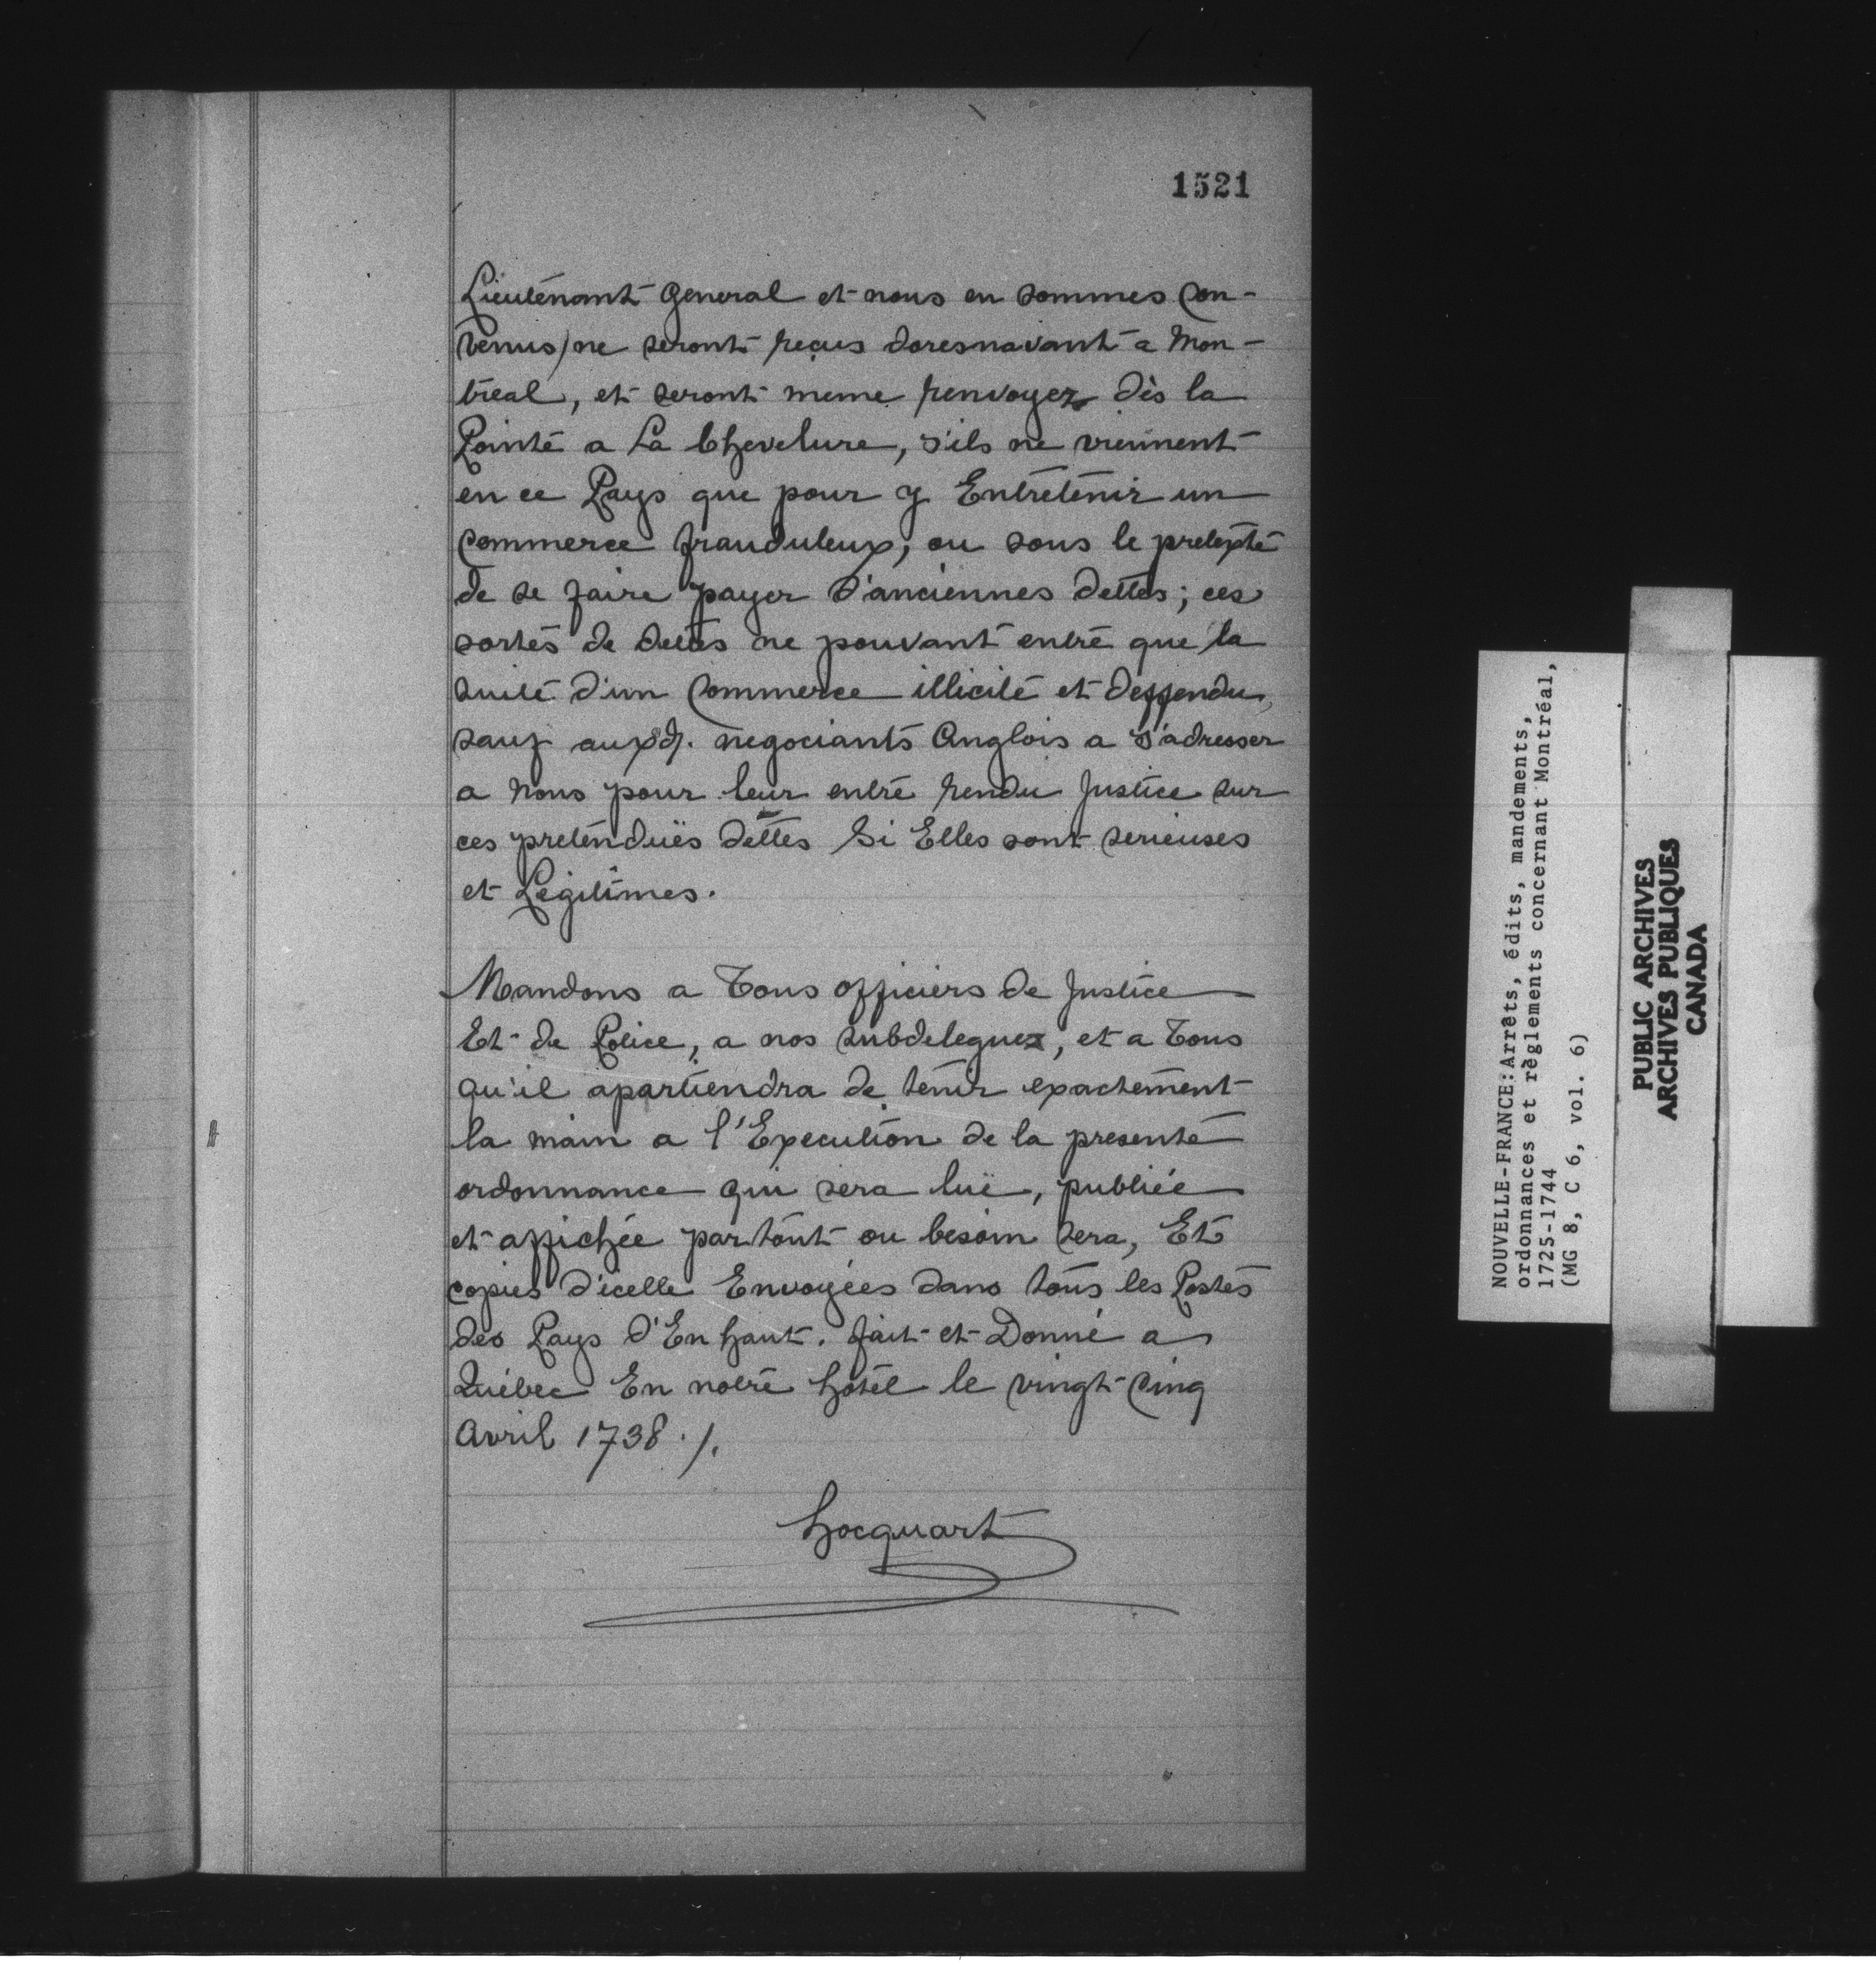 1521
Lieutenant General et nous en sommes Con-
venus) ne seront reçus doresnavant a Mon-
treal, et seront meme renvoyez dès la
Pointe a La Chevelure, s'ils ne viennent
en ce Pays que pour y Entretenir un
Commerce frauduleux, ou sous le pretexte
de se faire payer d'anciennes dettes; ces
sortes de dettes ne pouvant entre que la
suite d'un Commerce illicite et deffendu,
sauf auxd. negociants Anglois a s'adresser
a nous pour leur entre rendu Justice sur
ces pretenduës dettes Si Elles sont serieuses
et Legitimes.
Mandons a Tous officiers de Justice
Et de Police, a nos subdeleguez, et a Tous
qu'il apartiendra de tenir exactement
la main a l'Execution de la presente
ordonnance qui sera luë, publiée
et affichée partout ou besoin sera, Et
copies d'icelle Envoyées dans tous les Postes
des Pays d'En haut. fait et Donné a
Québec En notre hotel le vingt Cinq
Avril 1738 ./.
hocquart
NOUVELLE-FRANCE:Arrêts, édits, mandements,
ordonnances et règlements concernant Montréal,
1725-1744
(MG 8, C 6, vol. 6)
PUBLIC ARCHIVES
ARCHIVES PUBLIQUES
CANADA